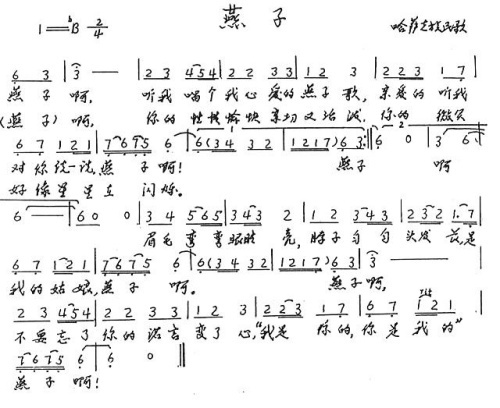 燕子
1=♭B 2/4 哈萨克族民歌
6 3 | 3 — — | 2 3 4 5 4 | 2 2 3 3 | 1 2 3 | 2 2 3 1 7 |
燕子啊, 听我唱个我心爱的燕子歌, 亲爱的听我
(燕子)啊, 你的性格愉快亲切又活泼, 你的微笑
6 7 1 2 1 | 7 6 7 5 6 | 6 (3 4 3 2 | 1 2 1 7) 6 3 :| 6 0 | 3 6 |
对你说一说,燕子啊! 燕子啊
好像星星在闪烁。
6 — | 6 0 0 | 3 4 5 6 5 | 3 4 3 2 | 1 2 3 4 3 | 2 3 2 1. 7 |
眉毛弯弯眼睛亮, 脖子匀匀头发长,是
6 7 1 2 1 | 7 6 7 5 6 | 6 (3 4 3 2 | 1 2 1 7) 6 3 | 3 — — |
我的姑娘,燕子啊。 燕子啊,
2 3 4 5 4 | 2 2 3 3 | 1 2 3 | 2 2 3 1 7 | 6 7 1 2 1 |
不要忘了你的诺言变了心,"我是你的,你是我的"
7 6 7 5 6 | 6 0 ‖
燕子啊!